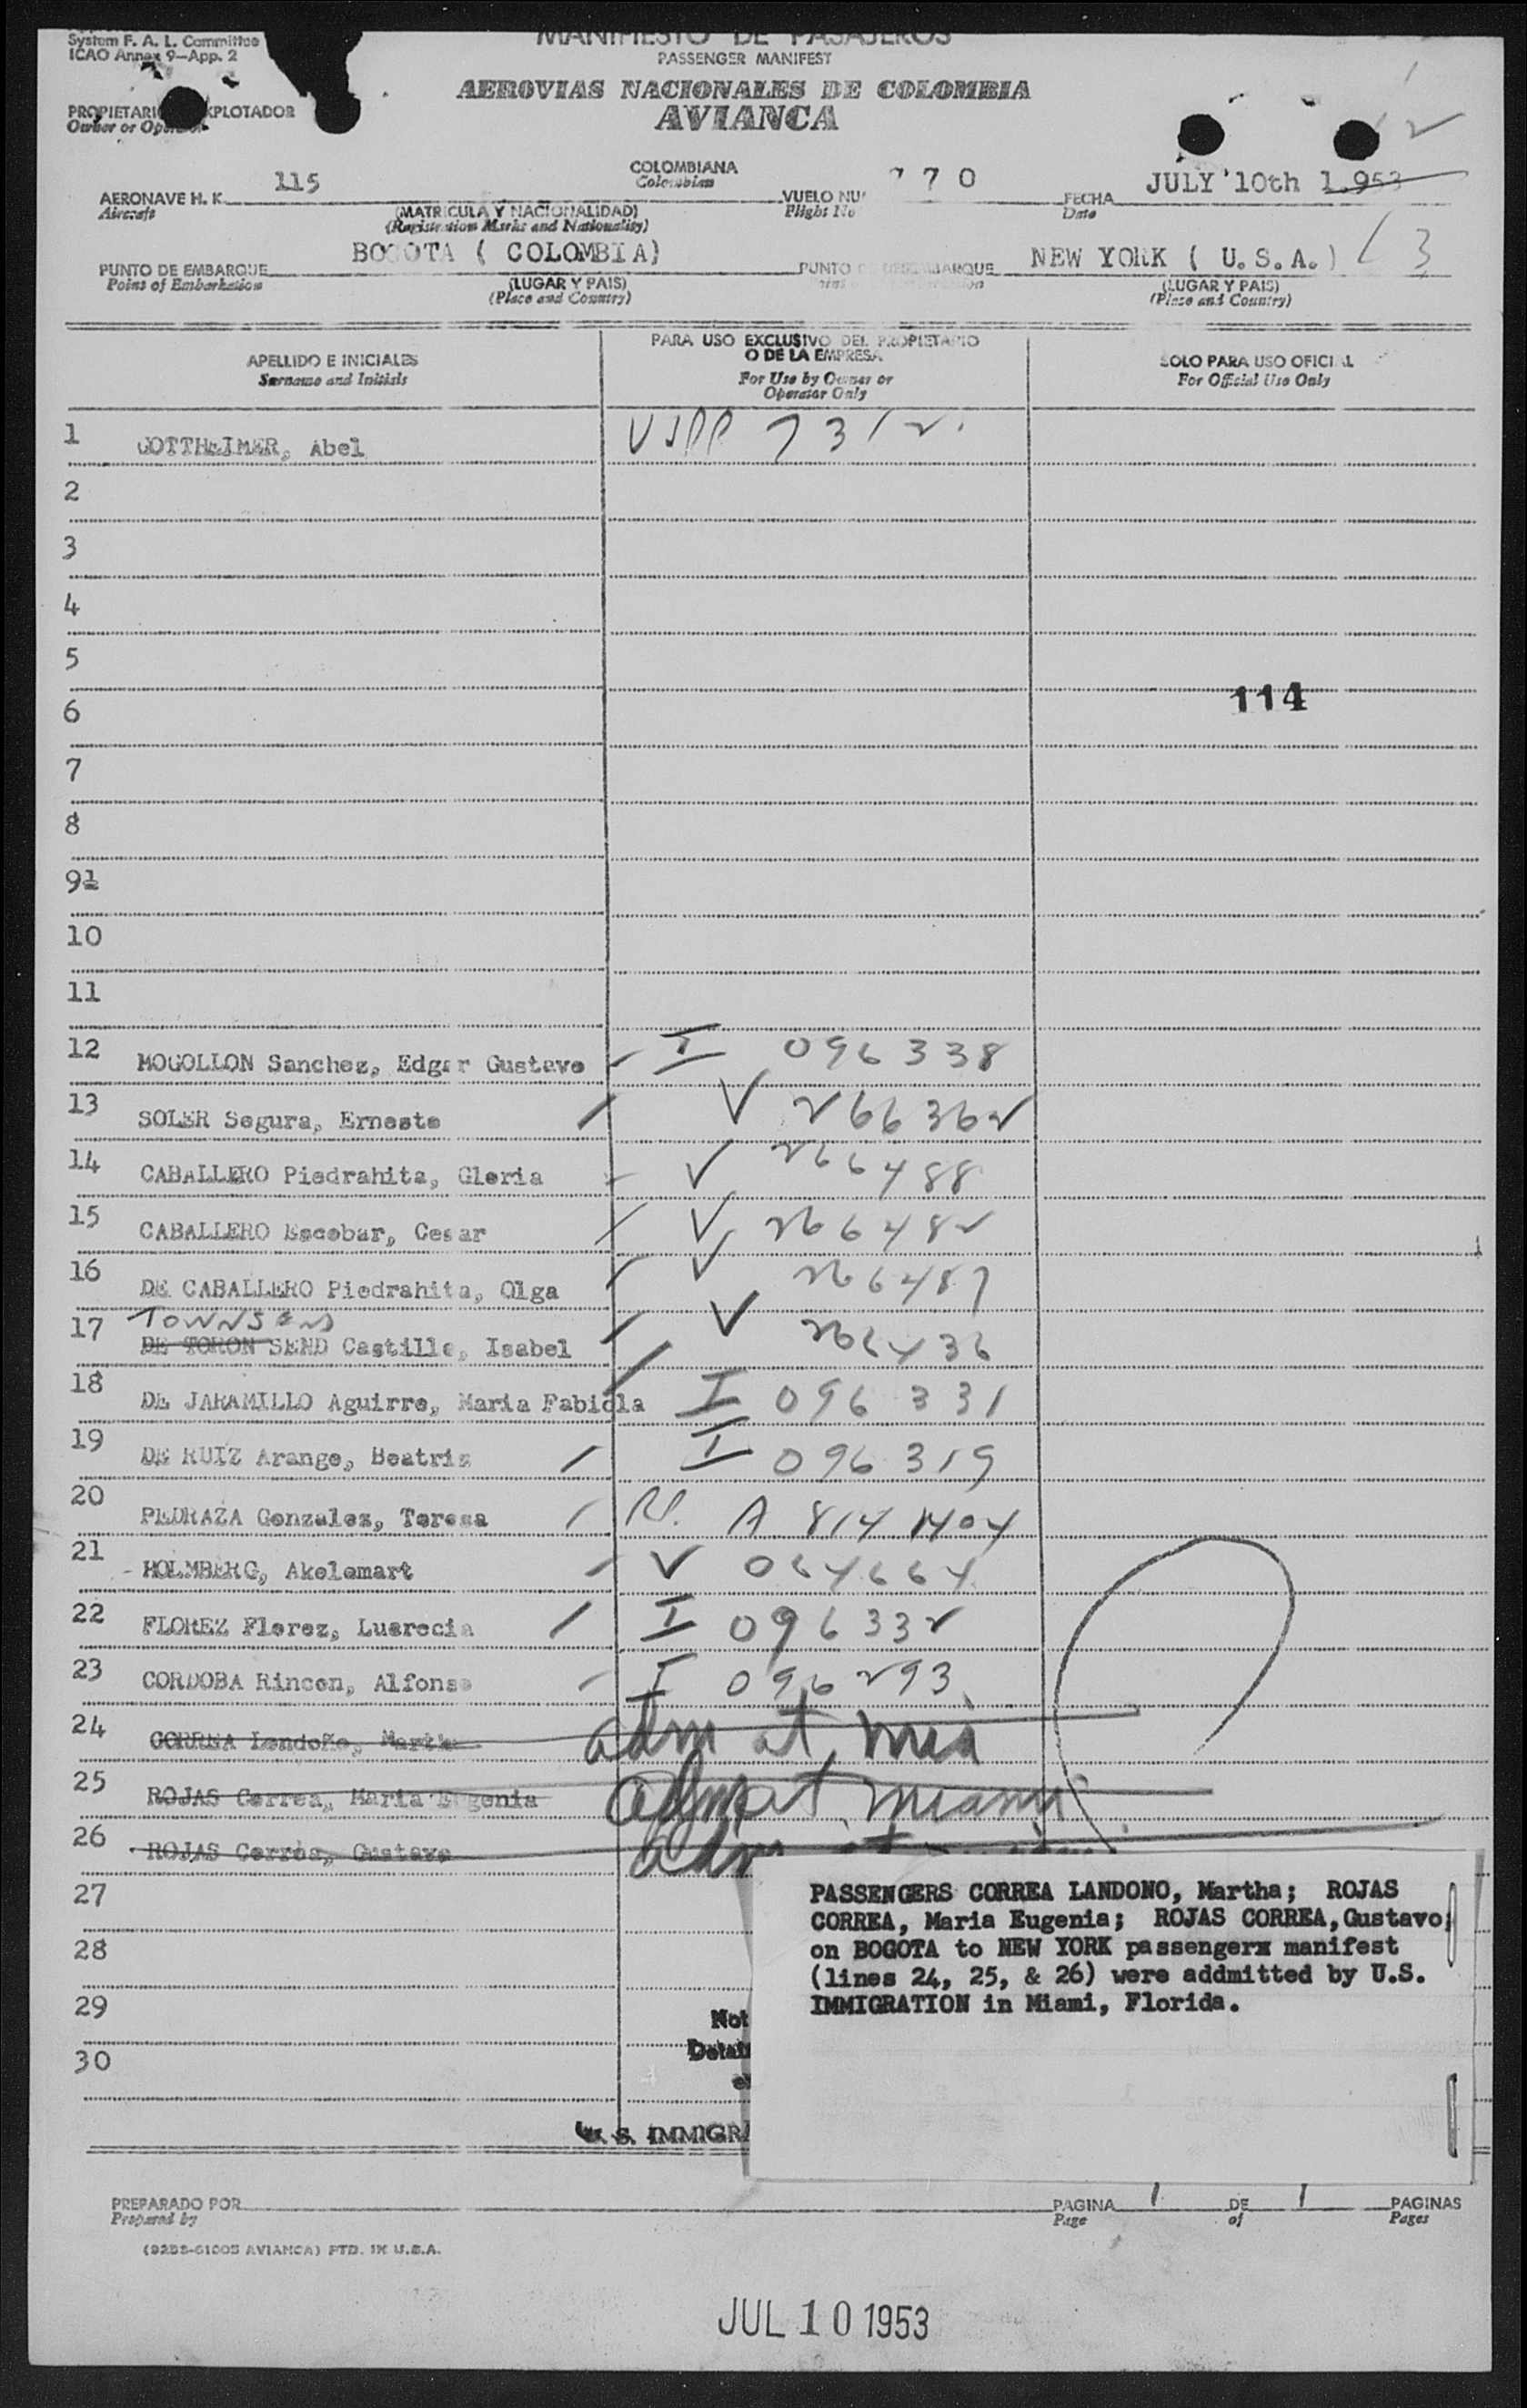 System F. A. L. Committee
ICAO Annex 9—App. 2
MANIFIESTO DE PASAJEROS
PASSENGER MANIFEST
AEROVIAS NACIONALES DE COLOMBIA
AVIANCA
Owner or
2
AERONAVE H. K. 115
Aircraft
(MATRICULA Y NACIONALIDAD)
(Registration Marks and Nationality)
COLOMBIANA
Colombian
VUELO 770
Flight No
FECHA JULY 10th 1.953
Date
PUNTO DE EMBARQUE BOGOTA ( COLOMBIA)
Point of Embarkation
(LUGAR Y PAIS)
(Place and Country)
PUNTO NEW YORK ( U. S. A. ) 13
(LUGAR Y PAIS)
(Place and Country)
APELLIDO E INICIALES
Surname and Initials
PARA USO EXCLUSIVO DEL PROPIETARIO
O DE LA EMPRESA
For Use by Owner or
Operator Only
SOLO PARA USO OFICIAL
For Official Use Only
1 GOTTHEIMER, Abel 7312
2
3
4
5
114
6
7
8
9
10
11
12 MOGOLLON Sanchez, Edgar Gustavo I 096338
13 SOLER Segura, Ernesto V 266362
14 CABALLERO Piedrahita, Gloria V 266488
15 CABALLERO Escobar, Cesar V 266482
16 DE CABALLERO Piedrahita, Olga V 266487
TOWNSEND
17 DE TORON SEND Castillo, Isabel V 266436
18 DE JARAMILLO Aguirre, Maria Fabiola I 096331
19 DE RUIZ Arango, Beatriz I 096319
20 PEDRAZA Gonzalez, Teresa A 814
21 HOLMBERG, Akelemart V 064664
22 FLOREZ Florez, Lucrecia I 096332
23 CORDOBA Rincon, Alfonso I 096293
24 CORREA Londoño, Martha adm at mia
25 ROJAS Correa, Maria Eugenia adm at miami
26 ROJAS Correa, Gustavo adm at
27
28
29
30
PASSENGERS CORREA LANDONO, Martha; ROJAS
CORREA, Maria Eugenia; ROJAS CORREA, Gustavo;
on BOGOTA to NEW YORK passengerx manifest
(lines 24, 25, & 26) were addmitted by U.S.
IMMIGRATION in Miami, Florida.
Not
Detai
U. S. IMMIGRA
PREPARADO POR
Prepared by
PAGINA 1 DE 1 PAGINAS
Page of Pages
AVIANCA) PTD. IN U.S.A.
JUL 10 1953